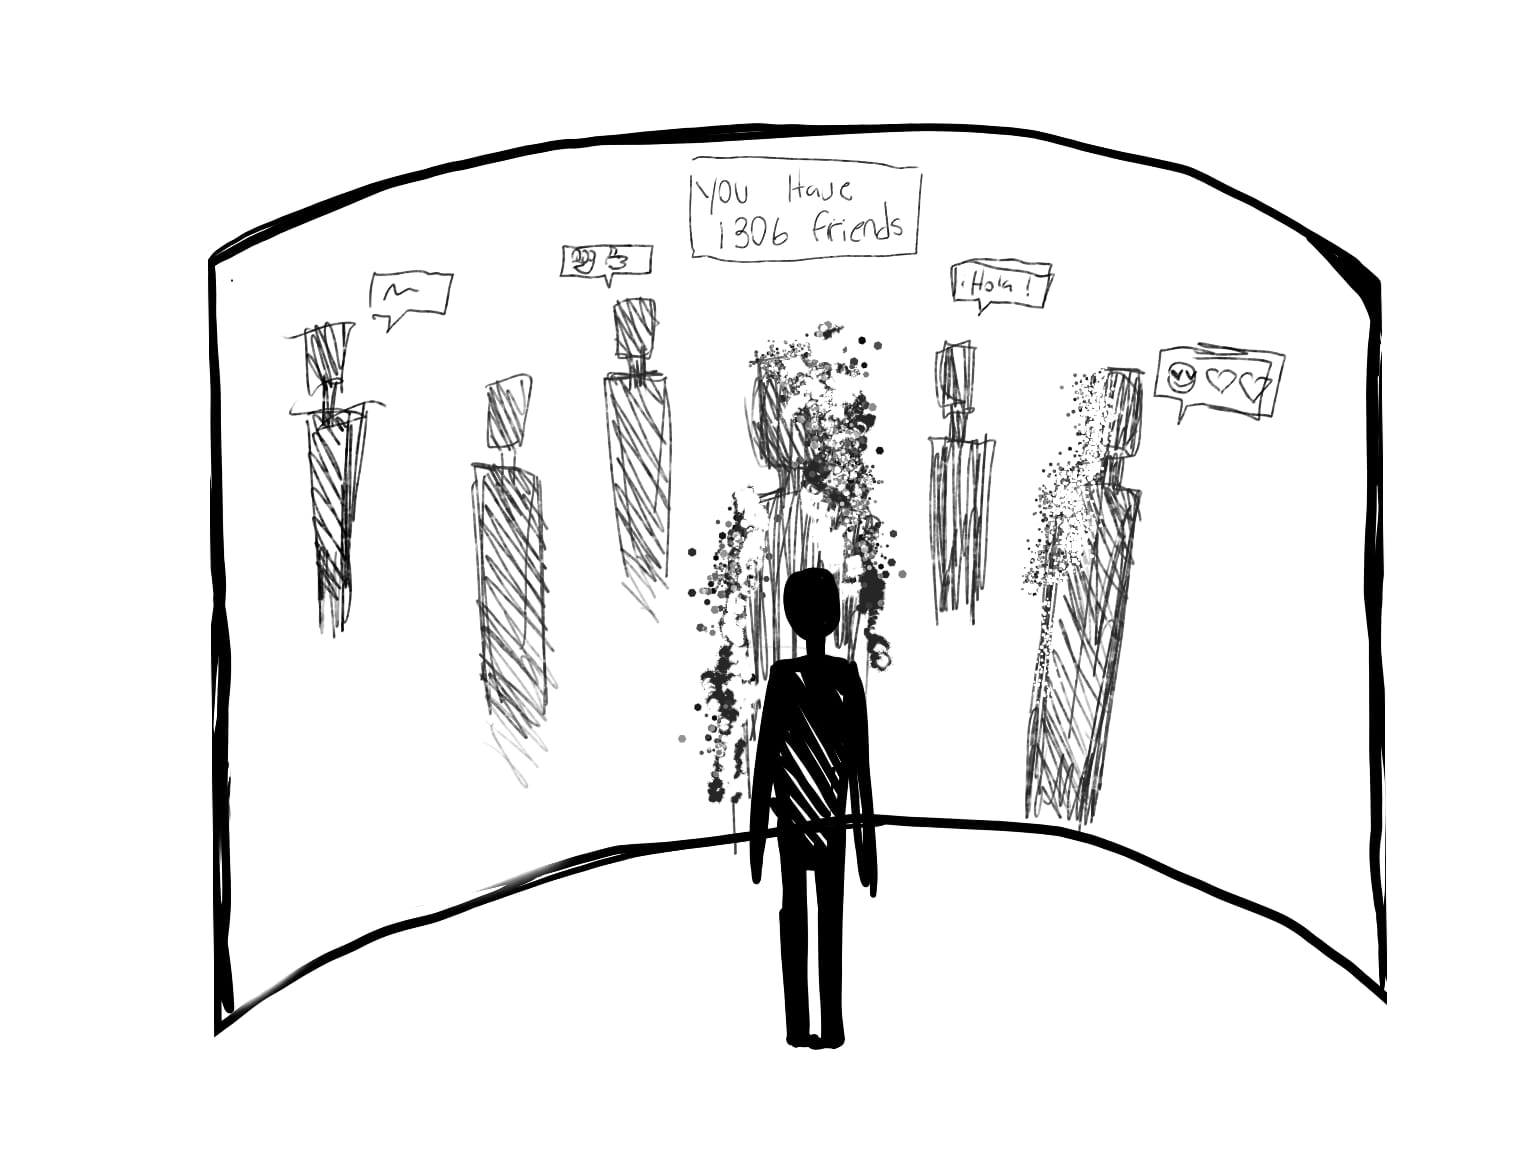 You Have
1306 friends
¡Hola!